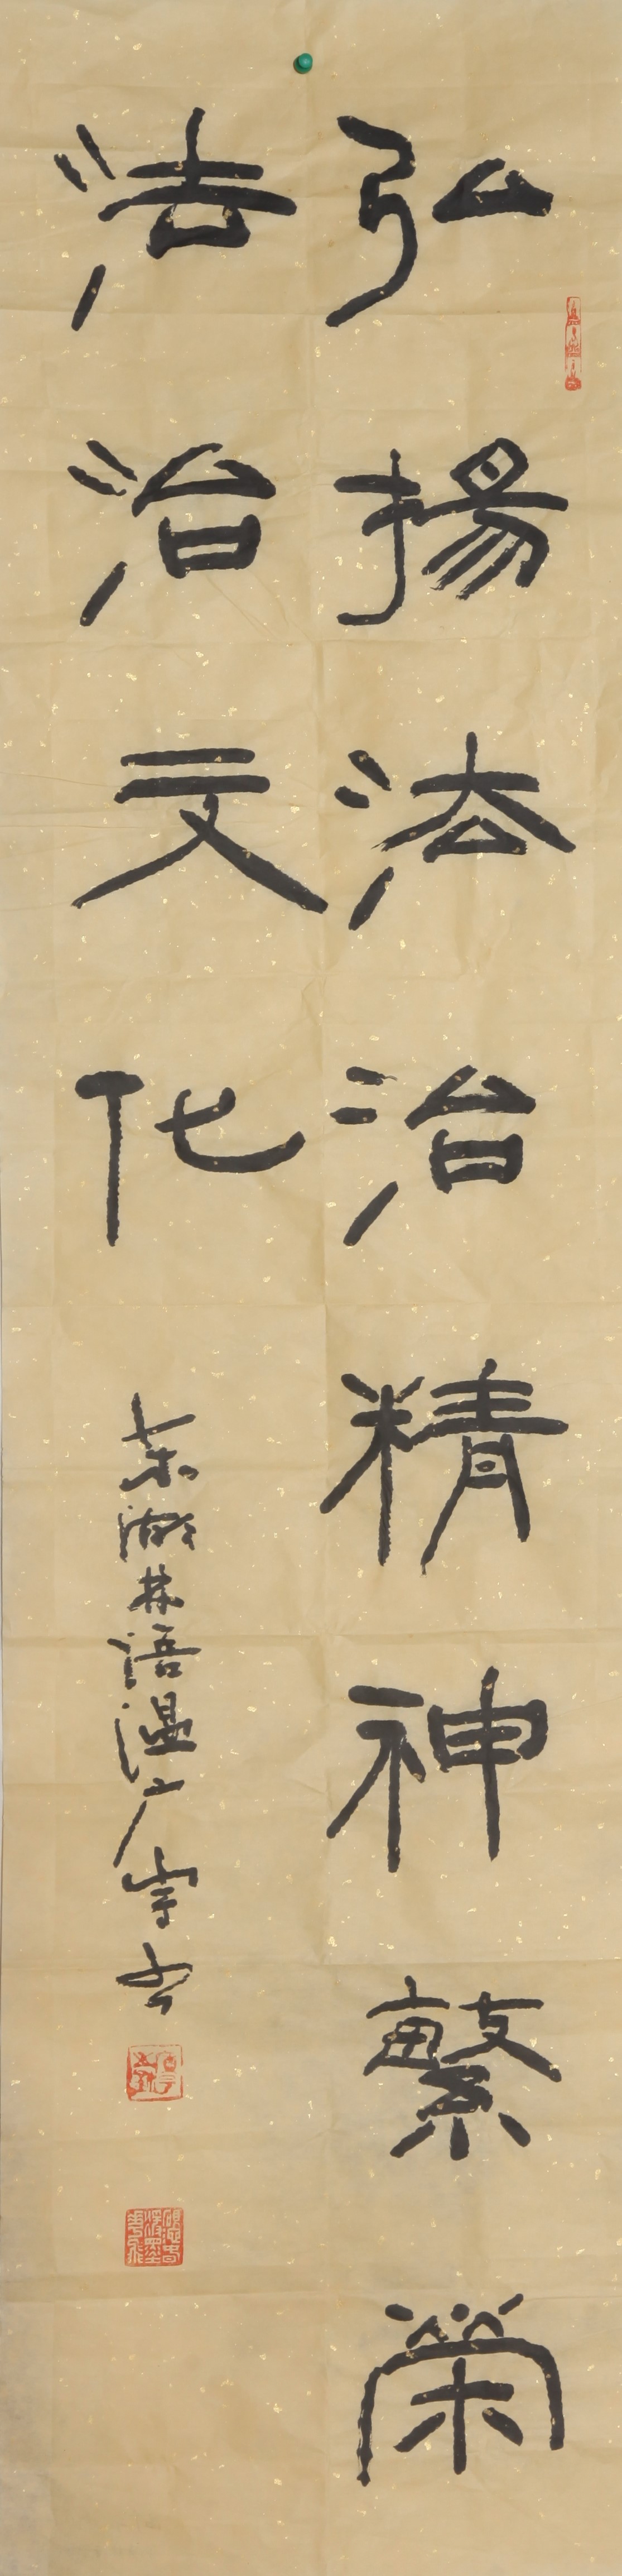 弘揚法治精神繁榮
法治文化
东湖林语温广宇书